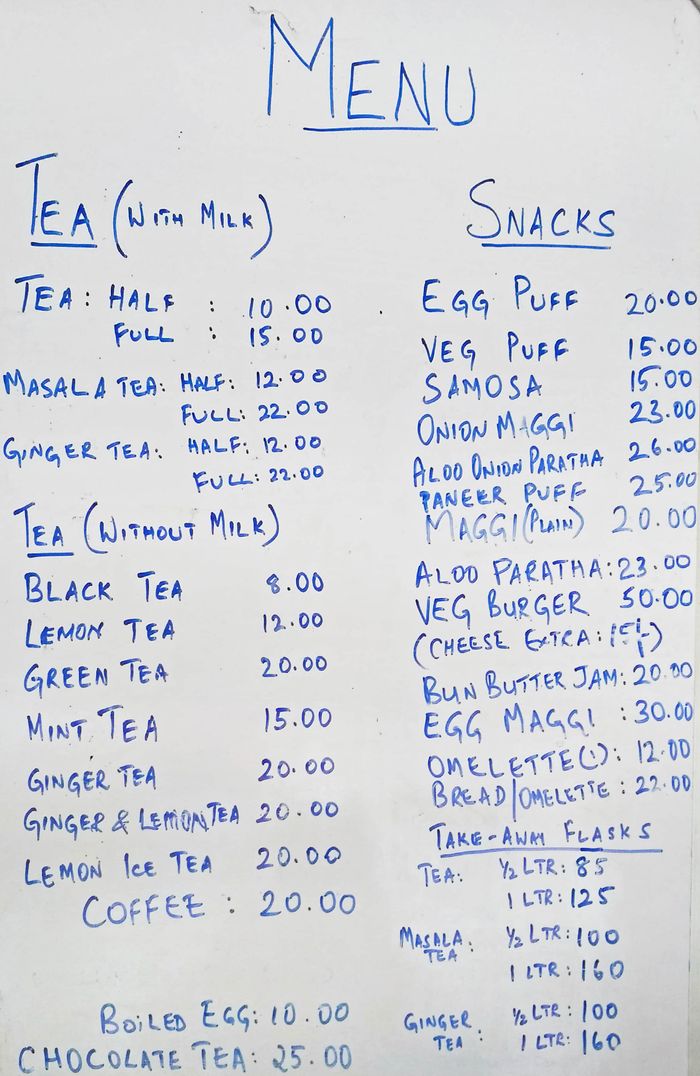 MENU
TEA (WITH MILK)
TEA: HALF : 10.00
FULL : 15.00
MASALA TEA: HALF: 12.00
FULL: 22.00
GINGER TEA: HALF: 12.00
FULL: 22.00
TEA (WITHOUT MILK)
BLACK TEA 8.00
LEMON TEA 12.00
GREEN TEA 20.00
MINT TEA 15.00
GINGER TEA 20.00
GINGER & LEMON TEA 20.00
LEMON ICE TEA 20.00
COFFEE : 20.00
BOILED EGG: 10.00
CHOCOLATE TEA: 25.00
SNACKS
EGG PUFF 20.00
VEG PUFF 15.00
SAMOSA 15.00
ONION MAGGI 23.00
ALOO ONION PARATHA 26.00
PANEER PUFF 25.00
MAGGI (PLAIN) 20.00
ALOO PARATHA: 23.00
VEG BURGER 50.00
(CHEESE EXTRA: 15/-)
BUN BUTTER JAM: 20.00
EGG MAGGI : 30.00
OMELETTE (1): 12.00
BREAD/OMELETTE: 22.00
TAKE-AWAY FLASKS
TEA: ½ LTR: 85
1 LTR: 125
MASALA TEA: ½ LTR: 100
1 LTR: 160
GINGER TEA: ½ LTR: 100
1 LTR: 160